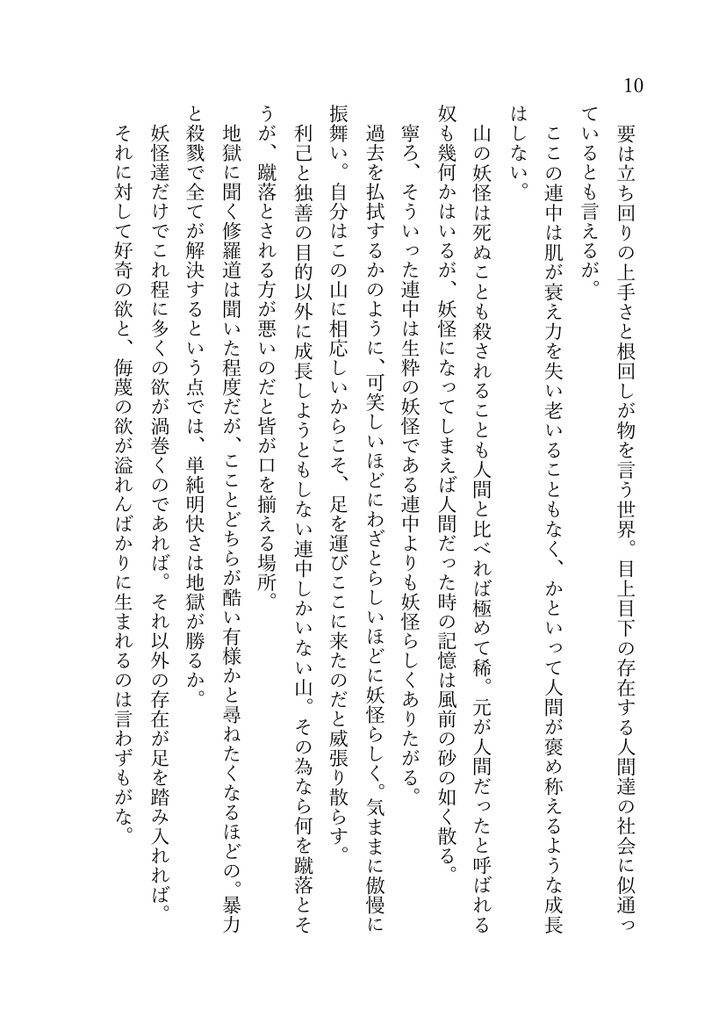 10
要は立ち回りの上手さと根回しが物を言う世界。目上目下の存在する人間達の社会に似通っ
ているとも言えるが。
ここの連中は肌が衰え力を失い老いることもなく、かといって人間が褒め称えるような成長
はしない。
山の妖怪は死ぬことも殺されることも人間と比べれば極めて稀。元が人間だったと呼ばれる
奴も幾何かはいるが、妖怪になってしまえば人間だった時の記憶は風前の砂の如く散る。
寧ろ、そういった連中は生粋の妖怪である連中よりも妖怪らしくありたがる。
過去を払拭するかのように、可笑しいほどにわざとらしいほどに妖怪らしく。気ままに傲慢に
振舞い。自分はこの山に相応しいからこそ、足を運びここに来たのだと威張り散らす。
利己と独善の目的以外に成長しようともしない連中しかいない山。その為なら何を蹴落とそ
うが、蹴落とされる方が悪いのだと皆が口を揃える場所。
地獄に聞く修羅道は聞いた程度だが、こことどちらが酷い有様かと尋ねたくなるほどの。暴力
と殺戮で全てが解決するという点では、単純明快さは地獄が勝るか。
妖怪達だけでこれ程に多くの欲が渦巻くのであれば。それ以外の存在が足を踏み入れれば。
それに対して好奇の欲と、侮蔑の欲が溢れんばかりに生まれるのは言わずもがな。